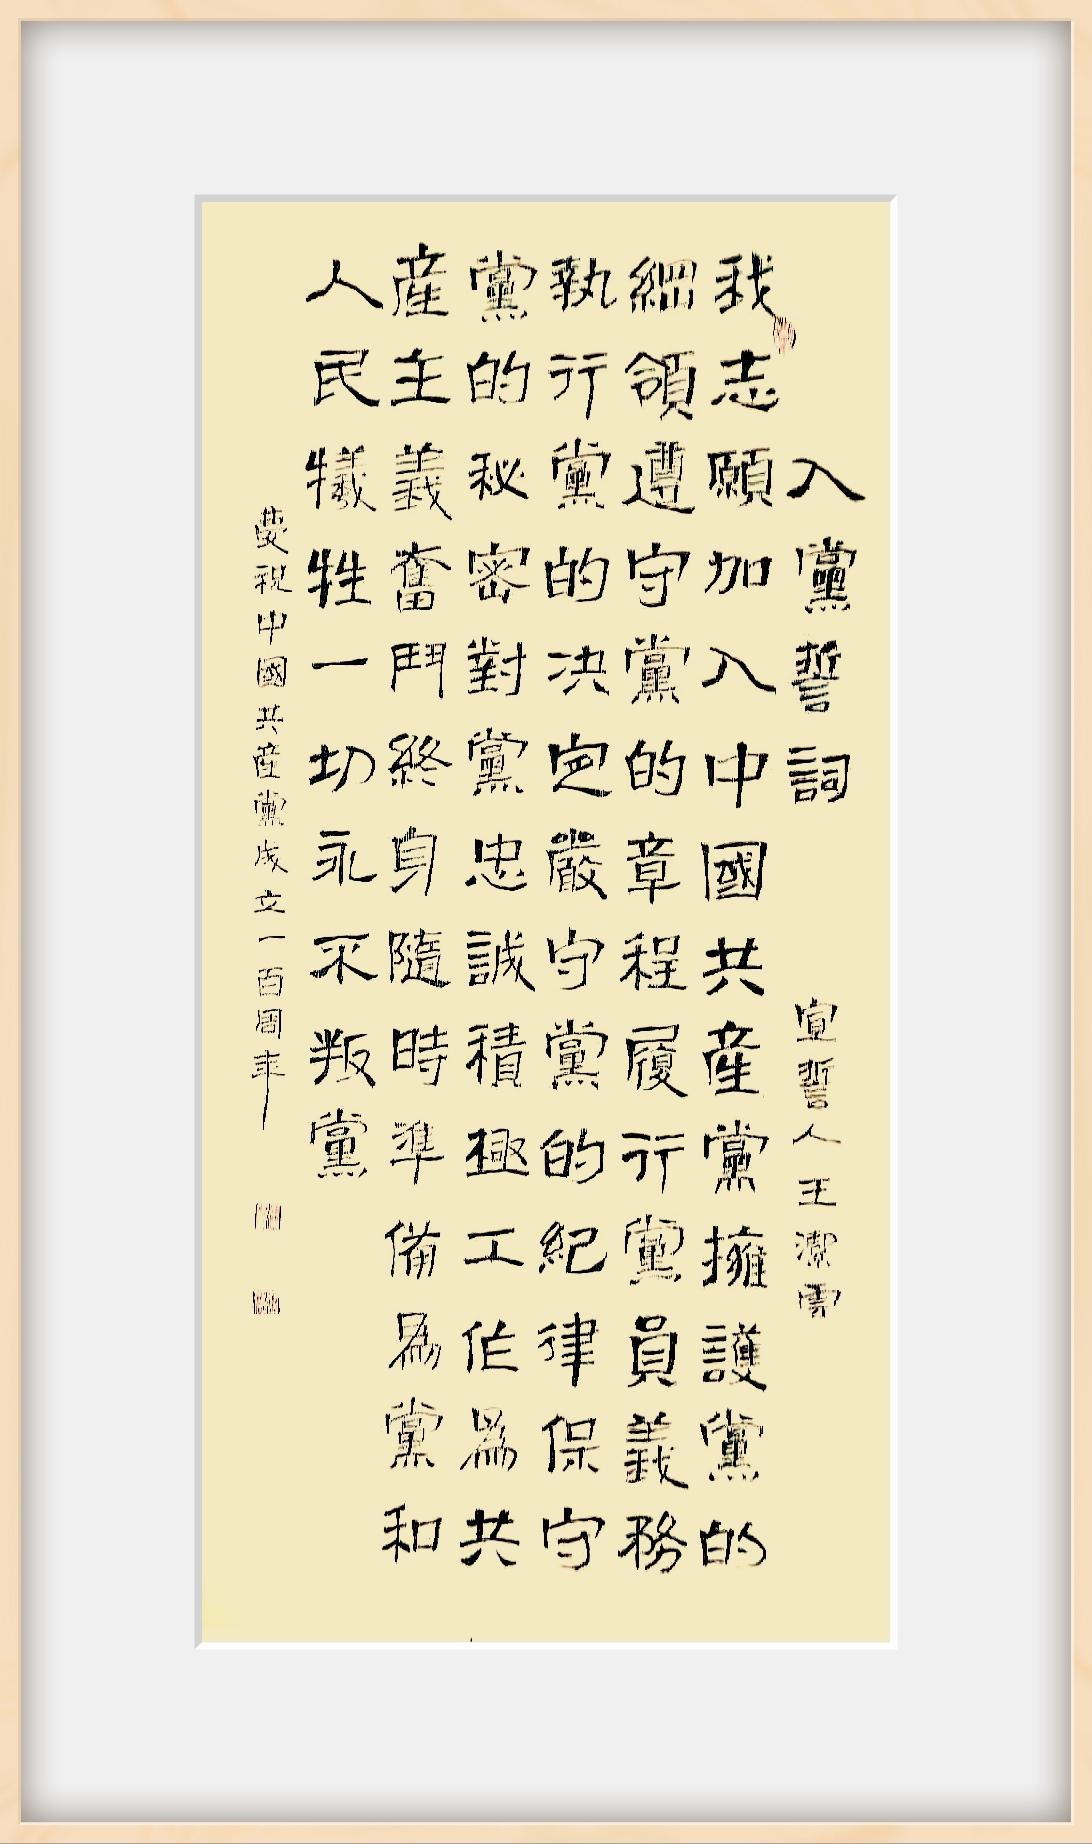 入黨誓詞 宣誓人王潔
我志願加入中國共産黨擁護黨的
綱領遵守黨的章程履行黨員義務
執行黨的决定嚴守黨的紀律保守
黨的秘密對黨忠誠積極工作為共
産主義奮鬥終身隨時準備為黨和
人民犧牲一切永不叛黨
慶祝中國共産黨成立一百周年